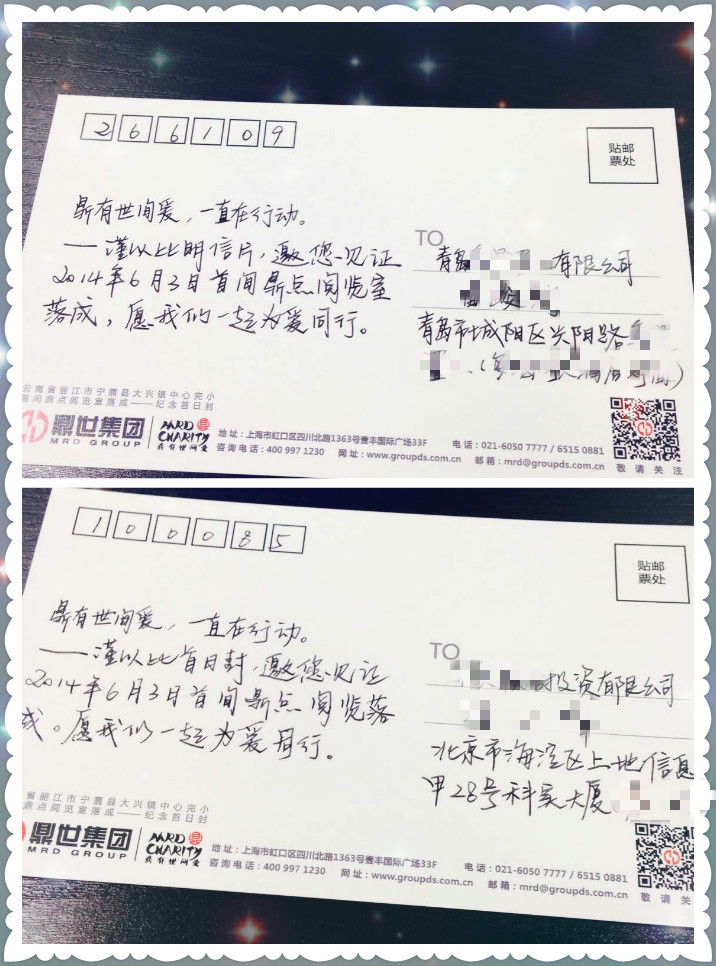 266109
贴邮
票处
鼎有世间爱，一直在行动。
——谨以此明信片，邀您见证
2014年6月3日首间鼎点阅览室
落成，愿我们一起为爱同行。
TO
青岛 有限公司
青岛市城阳区 阳路
云南省丽江市宁蒗县大兴镇中心完小
首间鼎点阅览室落成——纪念首日封
鼎世集团
MRD GROUP
MRD
CHARITY
鼎有世间爱
地址：上海市虹口区四川北路1363号壹丰国际广场33F
电话：021-6050 7777 / 6515 0881
咨询电话：400 997 1230
网址：www.groupds.com.cn
邮箱：mrd@groupds.com.cn
敬请关注
100085
贴邮
票处
鼎有世间爱，一直在行动。
——谨以此首日封，邀您见证
2014年6月3日首间鼎点阅览落
成。愿我们一起为爱同行。
TO
投资有限公司
北京市海淀区上地信息
甲28号科实大厦
省丽江市宁蒗县大兴镇中心完小
鼎点阅览室落成——纪念首日封
鼎世集团
MRD GROUP
MRD
CHARITY
鼎有世间爱
地址：上海市虹口区四川北路1363号壹丰国际广场33F
电话：021-6050 7777 / 6515 0881
咨询电话：400 997 1230
网址：www.groupds.com.cn
邮箱：mrd@groupds.com.cn
敬请关